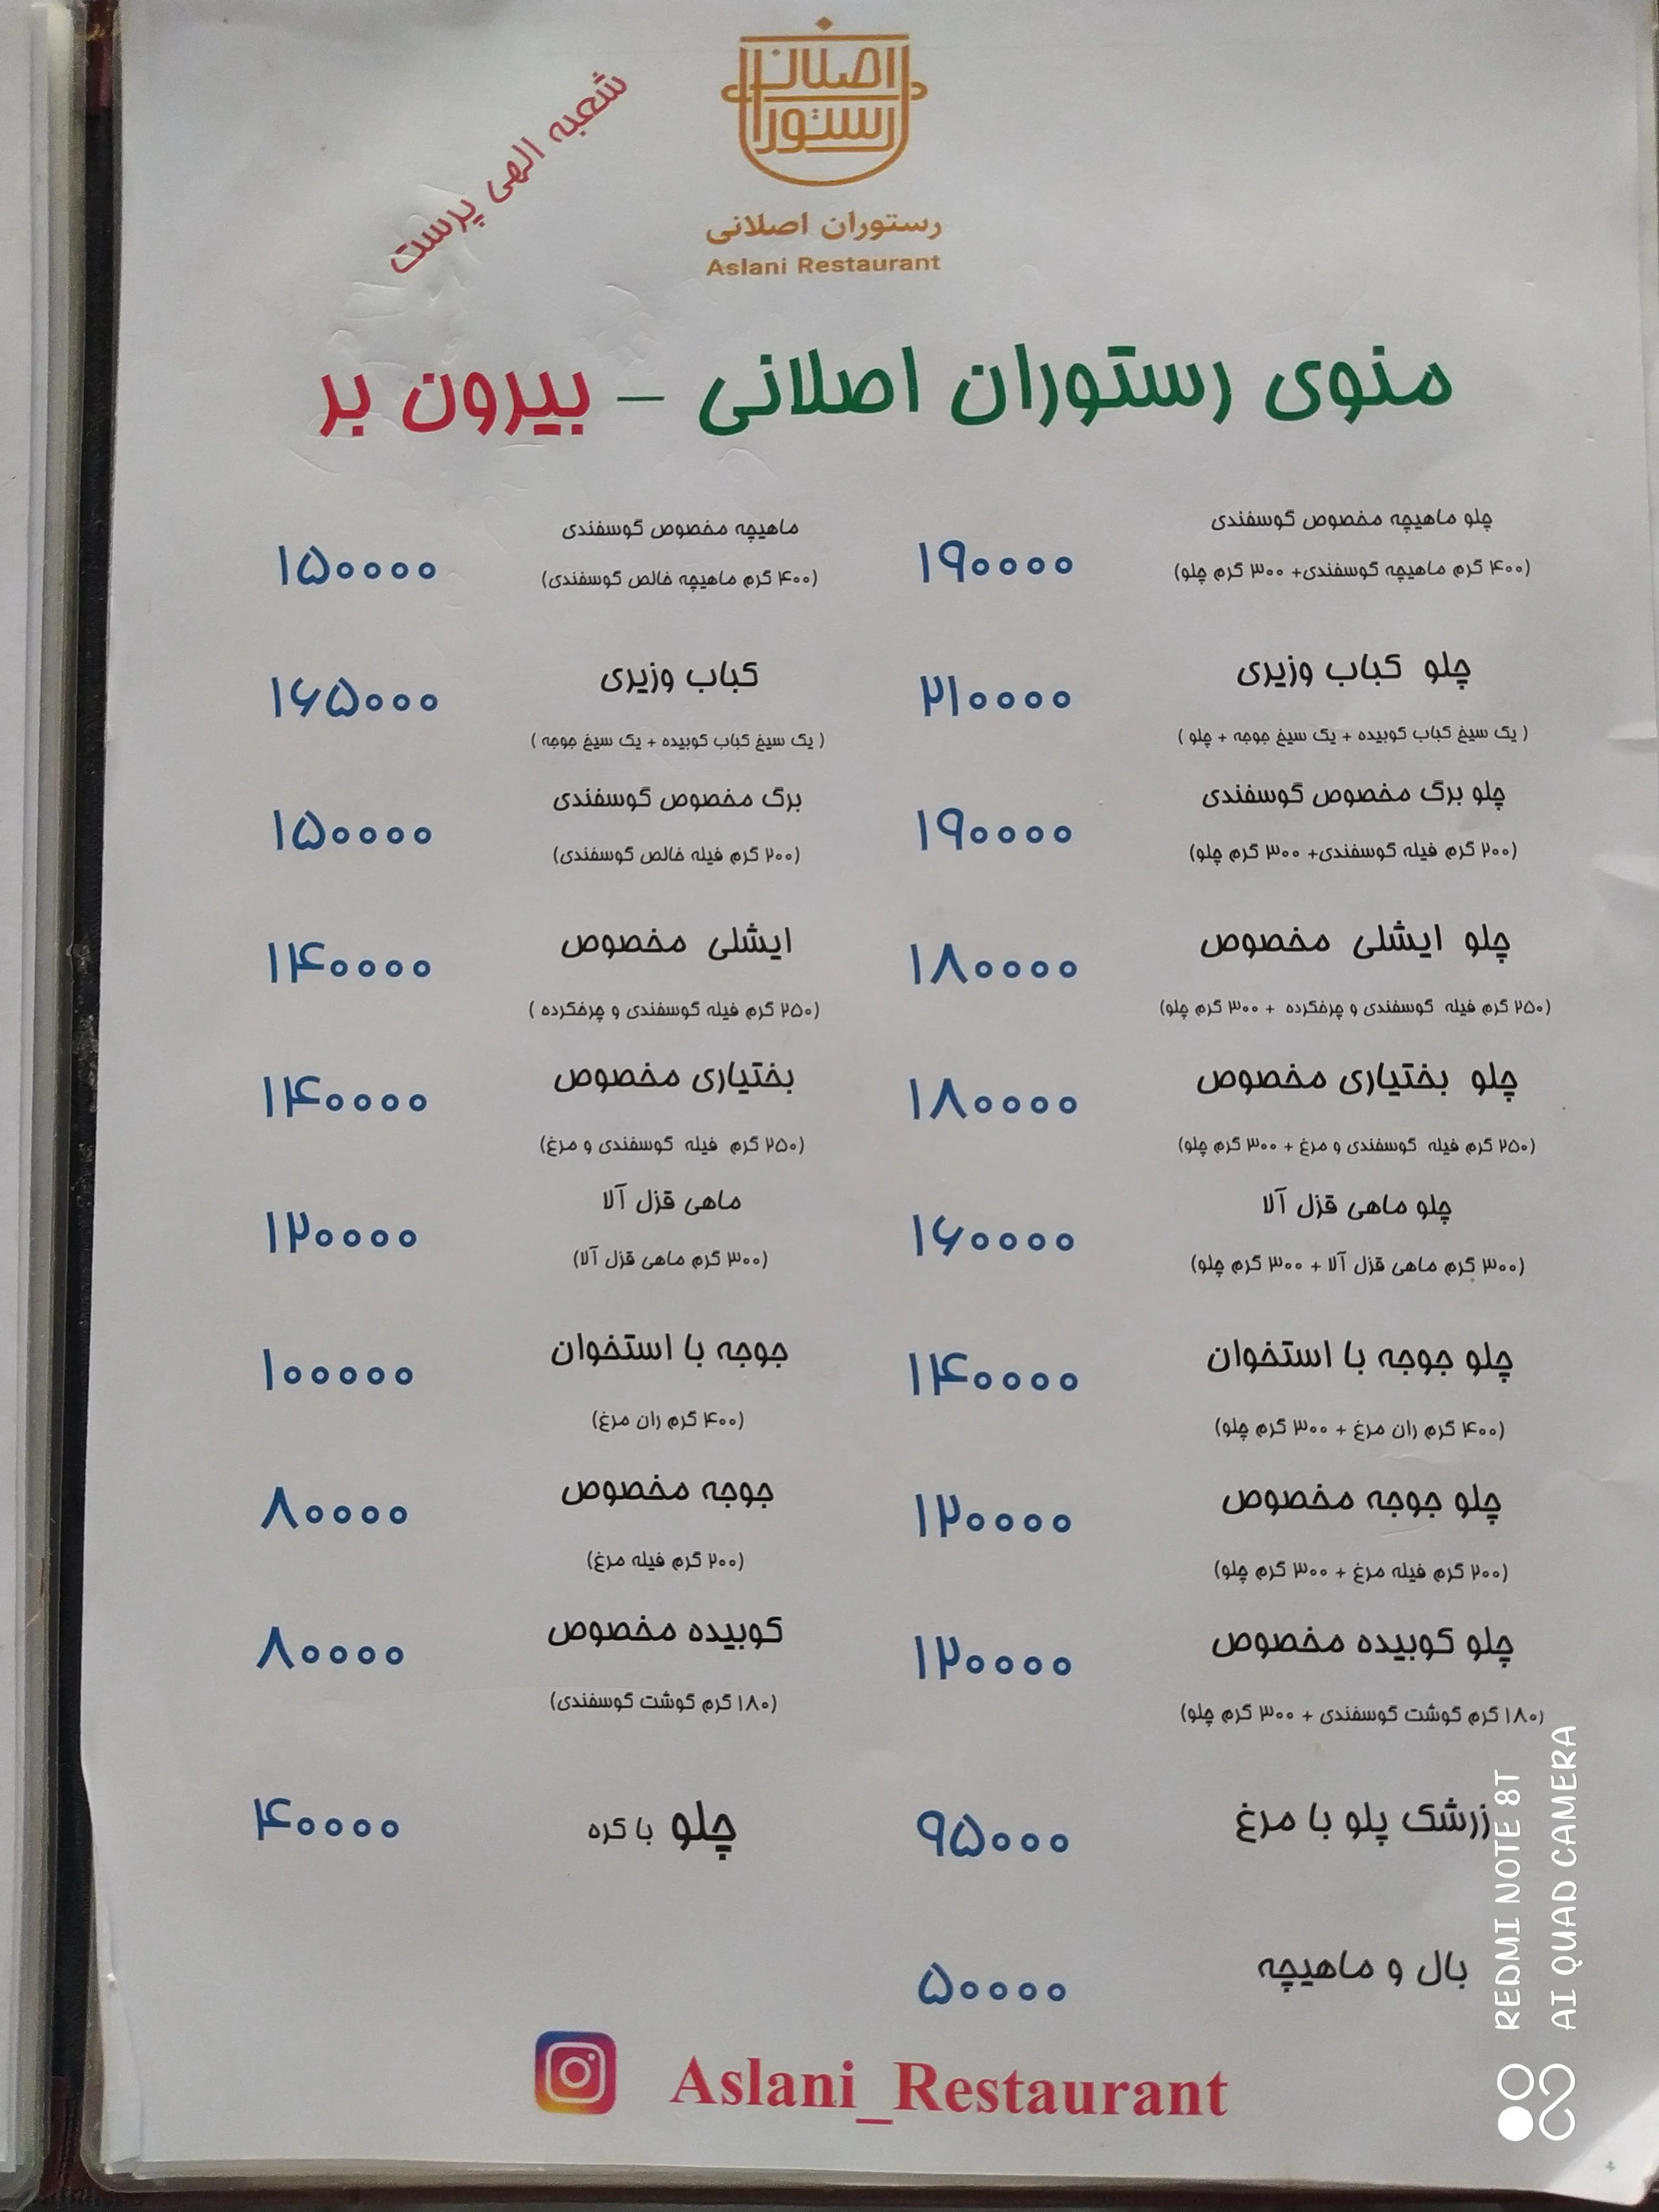 اصلانی
رستوران
رستوران اصلانی
Aslani Restaurant
شعبه الهی پرست
منوی رستوران اصلانی – بیرون بر
چلو ماهیچه مخصوص گوسفندی
(۴۰۰ گرم ماهیچه گوسفندی+ ۳۰۰ گرم چلو)
۱۹۰۰۰۰
ماهیچه مخصوص گوسفندی
(۴۰۰ گرم ماهیچه خالص گوسفندی)
۱۵۰۰۰۰
چلو کباب وزیری
( یک سیخ کباب کوبیده + یک سیخ جوجه + چلو )
۲۱۰۰۰۰
کباب وزیری
( یک سیخ کباب کوبیده + یک سیخ جوجه )
۱۶۵۰۰۰
چلو برگ مخصوص گوسفندی
(۲۰۰ گرم فیله گوسفندی+ ۳۰۰ گرم چلو)
۱۹۰۰۰۰
برگ مخصوص گوسفندی
(۲۰۰ گرم فیله خالص گوسفندی)
۱۵۰۰۰۰
چلو ایشلی مخصوص
(۲۵۰ گرم فیله گوسفندی و چرخکرده + ۳۰۰ گرم چلو)
۱۸۰۰۰۰
ایشلی مخصوص
(۲۵۰ گرم فیله گوسفندی و چرخکرده )
۱۴۰۰۰۰
چلو بختیاری مخصوص
(۲۵۰ گرم فیله گوسفندی و مرغ + ۳۰۰ گرم چلو)
۱۸۰۰۰۰
بختیاری مخصوص
(۲۵۰ گرم فیله گوسفندی و مرغ)
۱۴۰۰۰۰
چلو ماهی قزل آلا
(۳۰۰ گرم ماهی قزل آلا + ۳۰۰ گرم چلو)
۱۶۰۰۰۰
ماهی قزل آلا
(۳۰۰ گرم ماهی قزل آلا)
۱۲۰۰۰۰
چلو جوجه با استخوان
(۴۰۰ گرم ران مرغ + ۳۰۰ گرم چلو)
۱۴۰۰۰۰
جوجه با استخوان
(۴۰۰ گرم ران مرغ)
۱۰۰۰۰۰
چلو جوجه مخصوص
(۲۰۰ گرم فیله مرغ + ۳۰۰ گرم چلو)
۱۲۰۰۰۰
جوجه مخصوص
(۲۰۰ گرم فیله مرغ)
۸۰۰۰۰
چلو کوبیده مخصوص
(۱۸۰ گرم گوشت گوسفندی + ۳۰۰ گرم چلو)
۱۲۰۰۰۰
کوبیده مخصوص
(۱۸۰ گرم گوشت گوسفندی)
۸۰۰۰۰
زرشک پلو با مرغ
۹۵۰۰۰
چلو با کره
۴۰۰۰۰
بال و ماهیچه
۵۰۰۰۰
Aslani_Restaurant
REDMI NOTE 8T
AI QUAD CAMERA